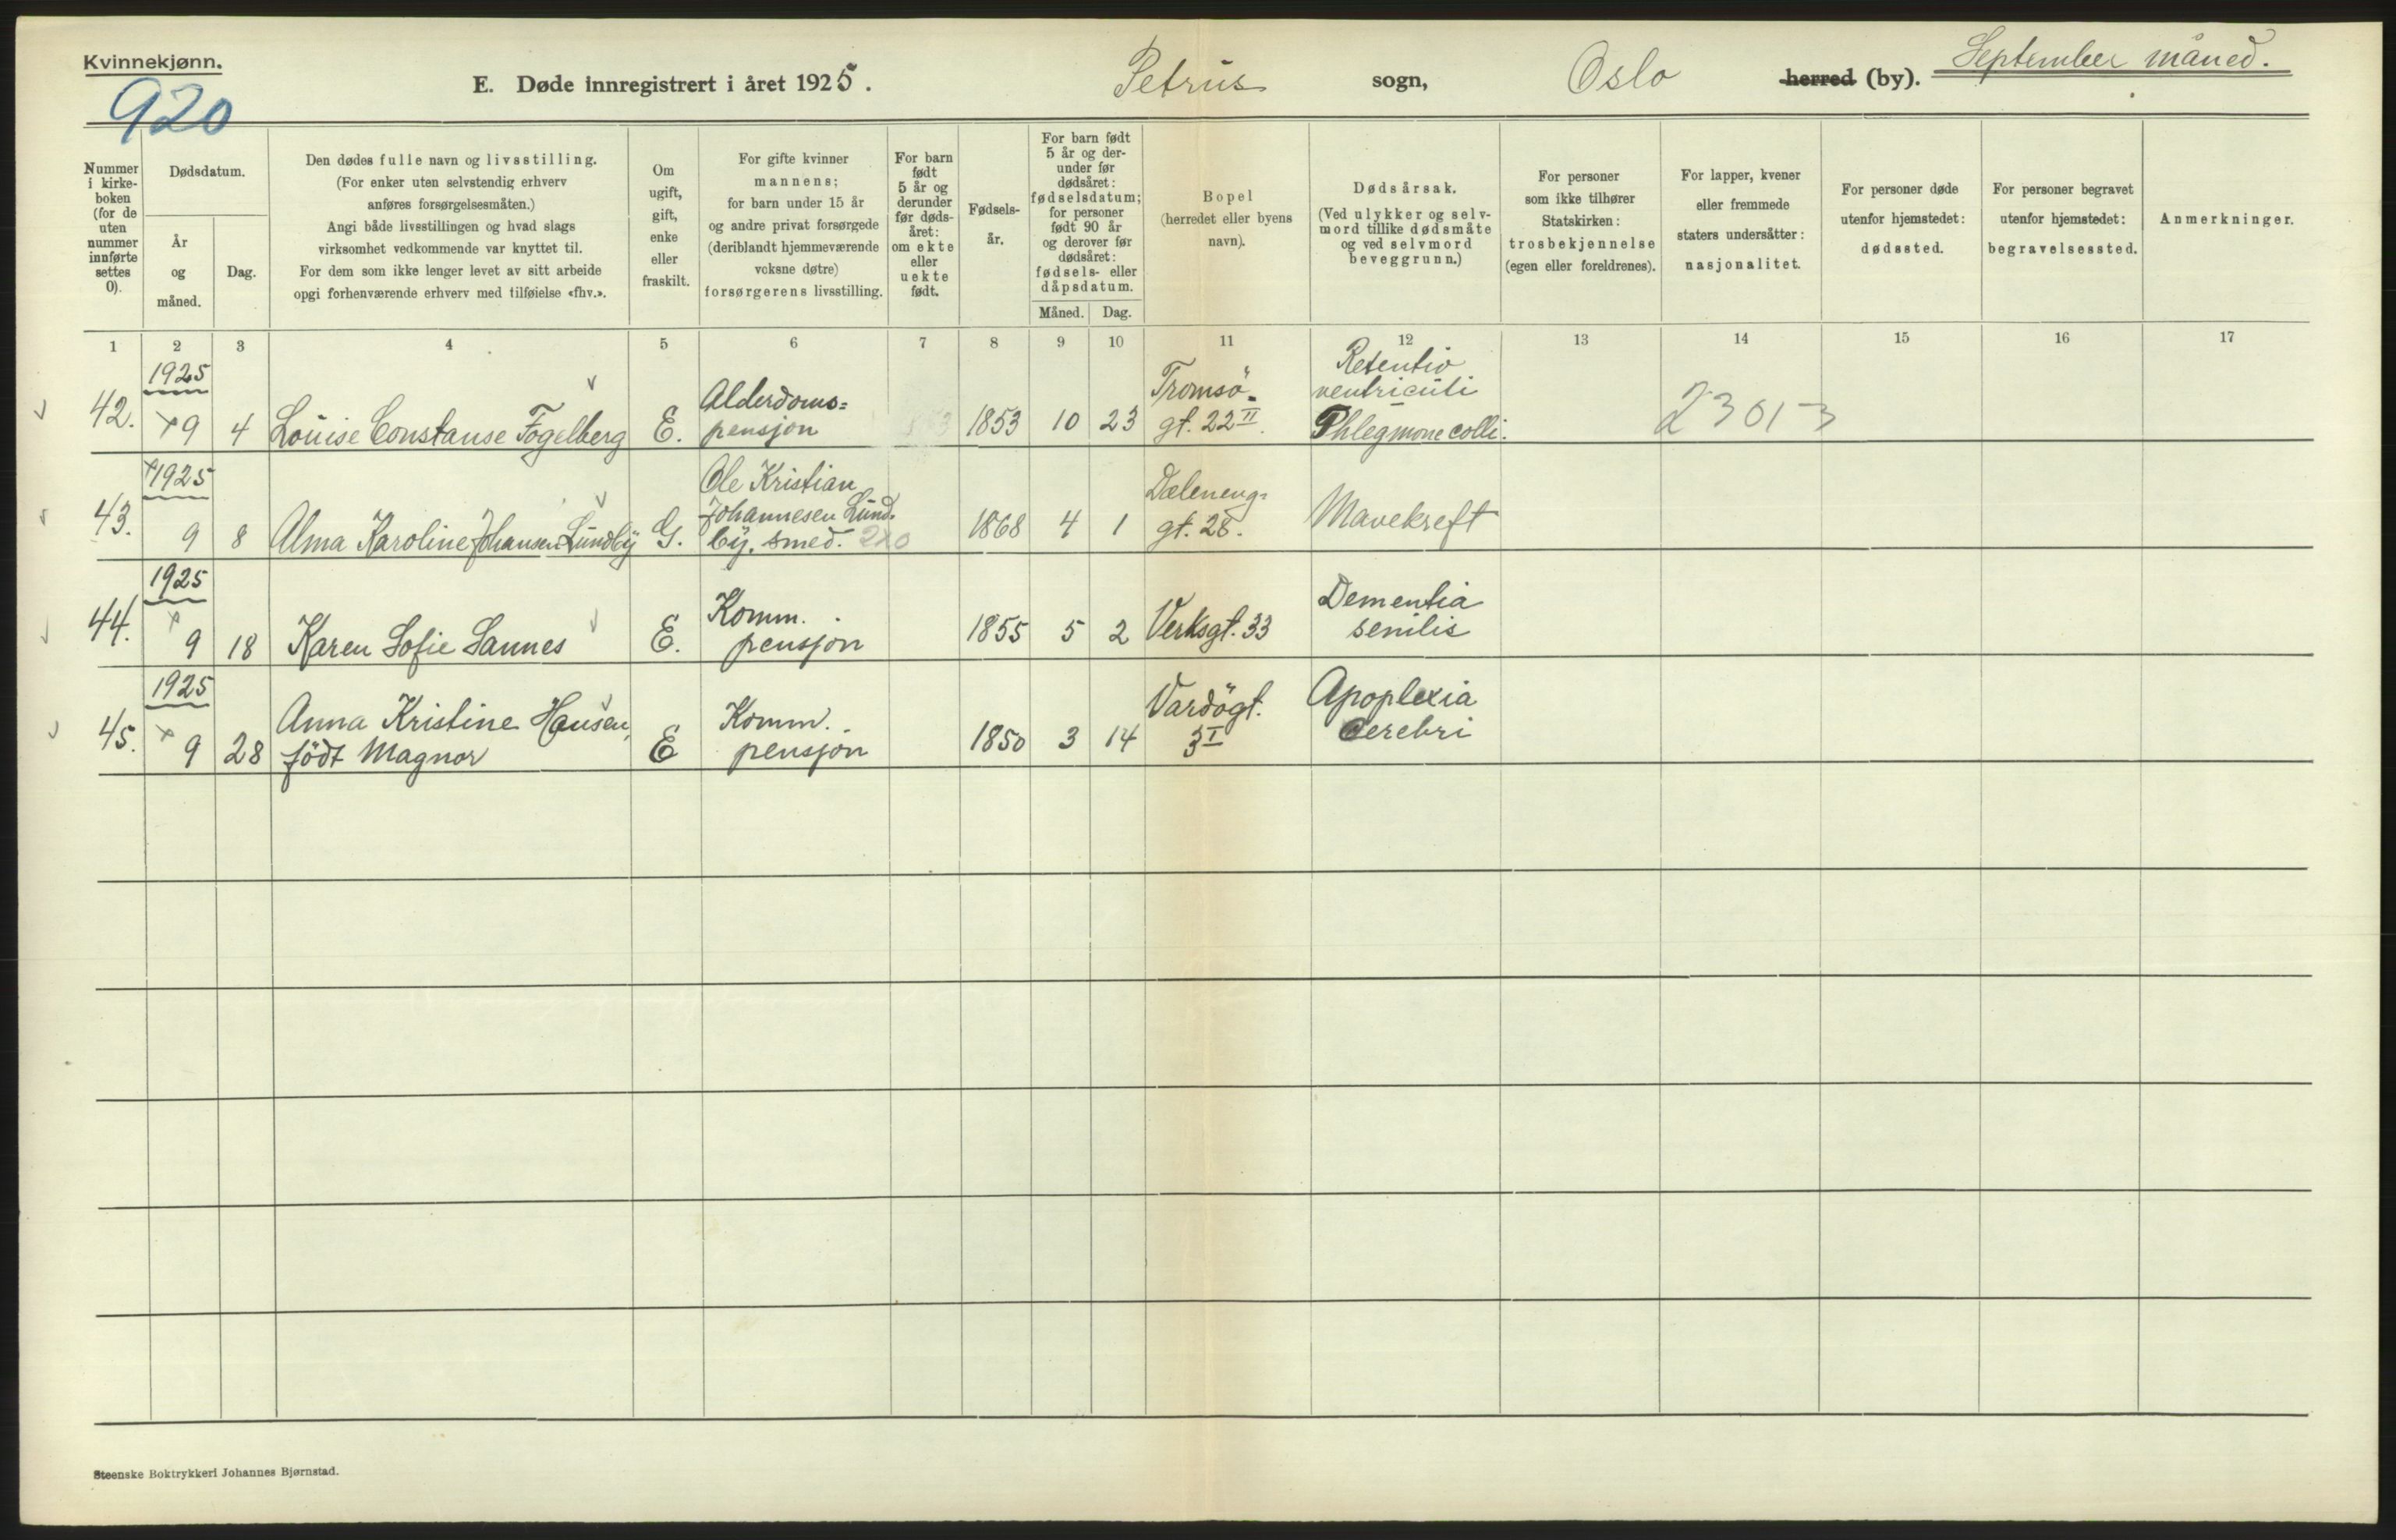 Kvinnekjønn.
920
E. Døde innregistrert i året 1925.
Petrus sogn, Oslo herred (by). September måned.
Nummer i kirke- boken (for de uten nummer innførte settes 0).
Dødsdatum.
År og måned.
Dag.
Den dødes fulle navn og livsstilling.
(For enker uten selvstendig erhverv
anføres forsørgelsesmåten.)
Angi både livsstillingen og hvad slags
virksomhet vedkommende var knyttet til.
For dem som ikke lenger levet av sitt arbeide
opgi forhenværende erhverv med tilføielse «fhv.».
Om
ugift,
gift,
enke
eller
fraskilt.
For gifte kvinner
mannens;
for barn under 15 år
og andre privat forsørgede
(deriblandt hjemmeværende
voksne døtre)
forsørgerens livsstilling.
For barn
født
5 år og
derunder
før døds-
året:
om ekte
eller
uekte
født.
Fødsels-
år.
For barn født
5 år og der-
under før
dødsåret:
fødselsdatum;
for personer
født 90 år
og derover før
dødsåret:
fødsels- eller
dåpsdatum.
Måned. Dag.
Bopel
(herredet eller byens
navn).
Dødsårsak.
(Ved ulykker og selv-
mord tillike dødsmåte
og ved selvmord
beveggrunn.)
For personer
som ikke tilhører
Statskirken:
trosbekjennelse
(egen eller foreldrenes).
For lapper, kvener
eller fremmede
staters undersåtter:
nasjonalitet.
For personer døde
utenfor hjemstedet:
dødssted.
For personer begravet
utenfor hjemstedet:
begravelsessted.
Anmerkninger.
1 2 3 4 5 6 7 8 9 10 11 12 13 14 15 16 17
1925 Alderdoms= Tromsö- Retentio ventriculi
42. 9 4 Louise Constanse Fogelberg E. pensjon 1853 10 23 gt. 22 II. Phlegmone colli. 23013
1925 Ole Kristian Johannesen Lund- Dæleneng=
43. 9 8 Alma Karoline Johansen Lundby G. by, smed. 1868 4 1 gt. 28. Mavekreft
1925 Komm. Dementia
44. 9 18 Karen Sofie Sannes E. pensjon 1855 5 2 Verksgt. 33 senilis
1925 Anna Kristine Hansen, Komm. Vardögt. Apoplexia
45. 9 28 födt Magnor E pensjon 1850 3 14 3 I cerebri
Steenske Boktrykkeri Johannes Bjørnstad.